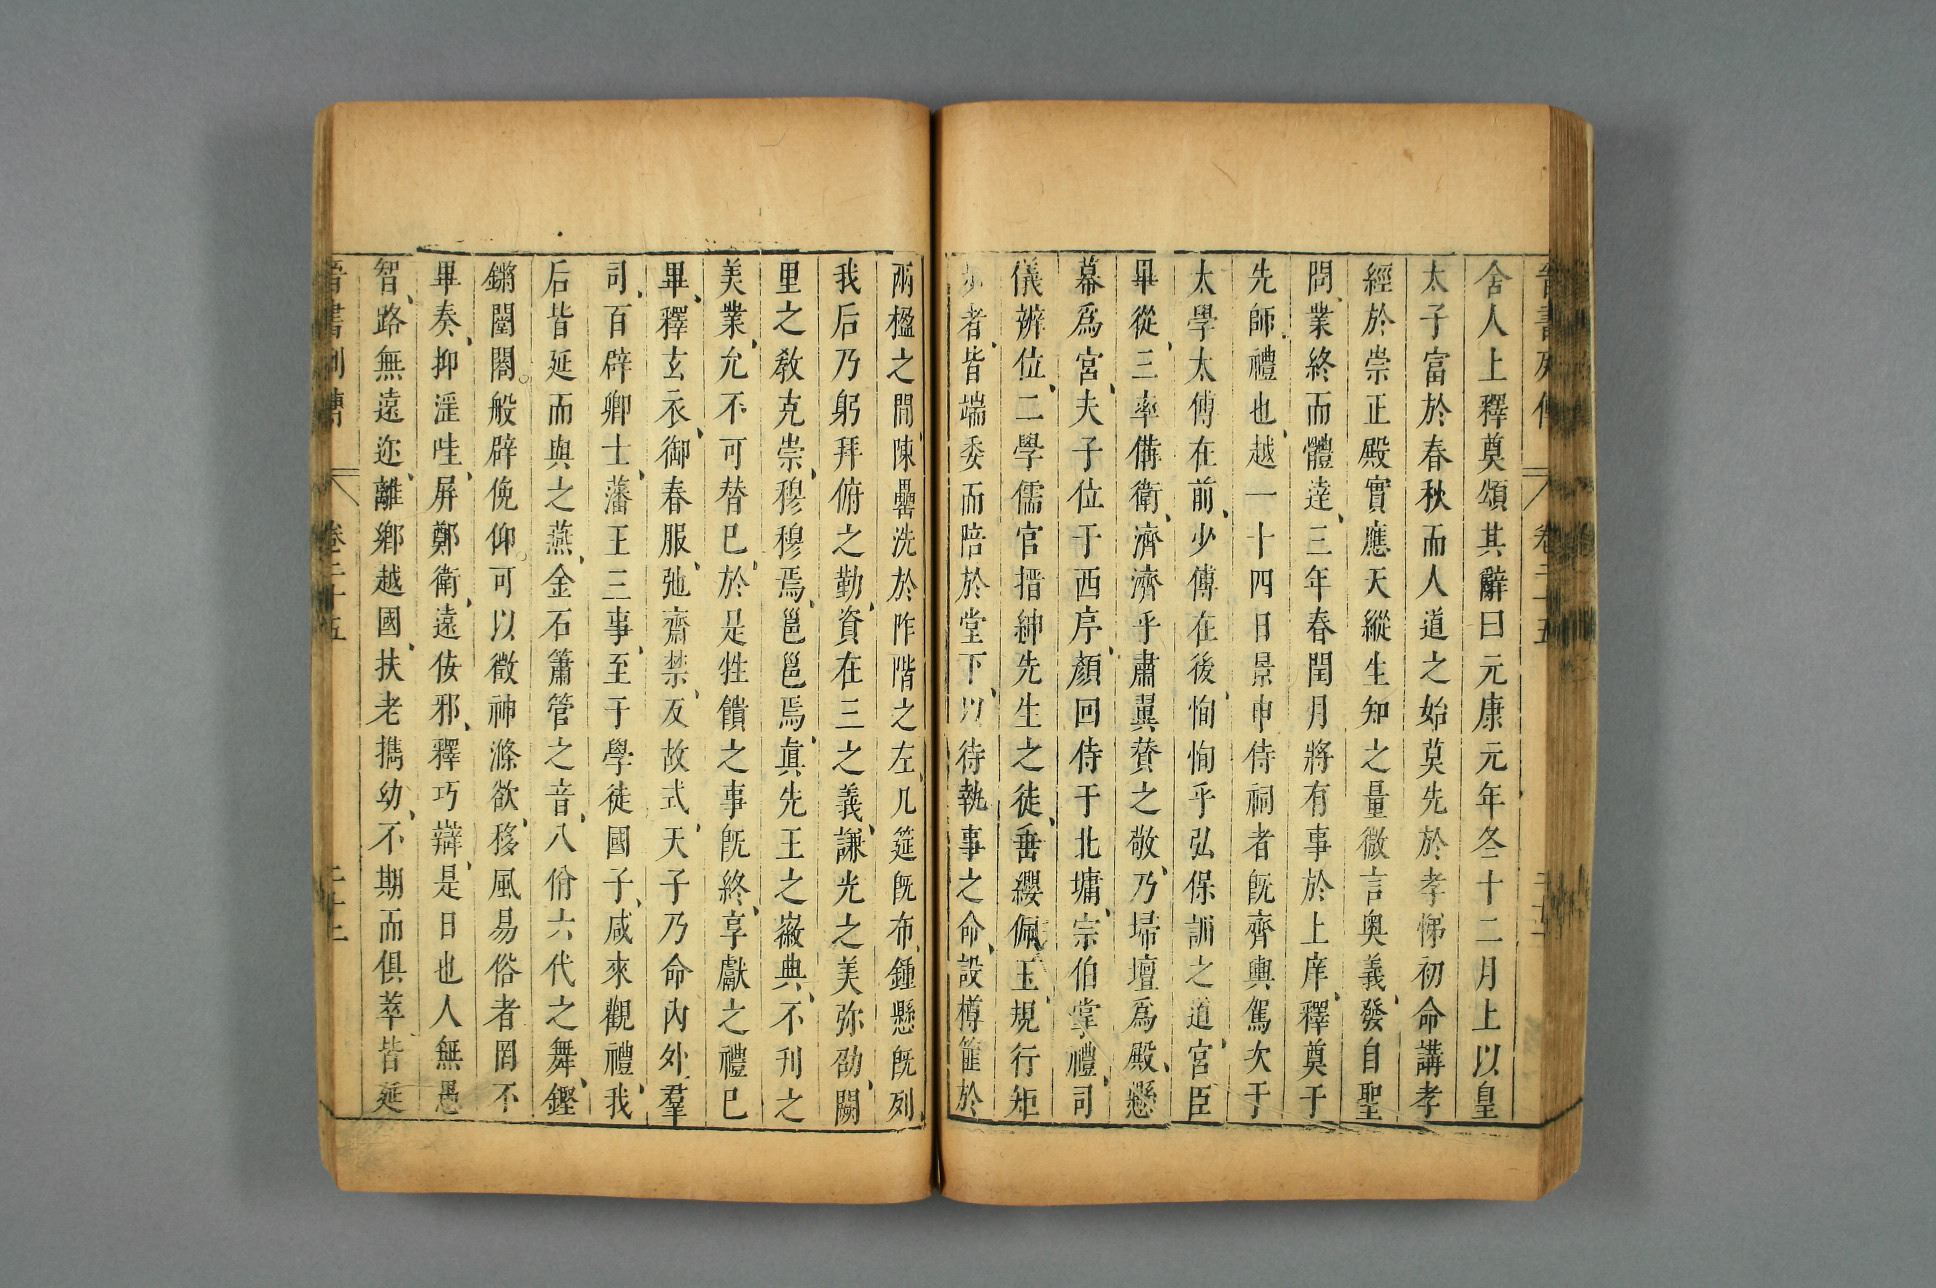 晉書列傳 卷二十五
舍人上釋奠頌其辭曰元康元年冬十二月上以皇
太子富於春秋而人道之始莫先於孝悌初命講孝
經於崇正殿實應天縱生知之量微言奧義發自聖
問業終而體達三年春閏月將有事於上庠釋奠于
先師禮也越二十四日景申侍祠者既齊輿駕次于
太學太傅在前少傅在後恂恂乎弘保訓之道宮臣
畢從三率備衛濟濟乎肅翼贊之敬乃埽壇爲殿懸
幕爲宮夫子位于西序顏回侍于北墉宗伯掌禮司
儀辨位二學儒官搢紳先生之徒垂纓佩玉規行矩
步者皆端委而陪於堂下以待執事之命設樽篚於
兩楹之間陳罍洗於阼階之左几筵既布鍾懸既列
我后乃躬拜俯之勤資在三之義謙光之美彌劭闕
里之敎克崇穆穆焉邕邕焉眞先王之徽典不刊之
美業允不可替已於是牲饋之事既終享獻之禮已
畢釋玄衣御春服弛齋禁反故式天子乃命內外羣
司百辟卿士藩王三事至于學徒國子咸來觀禮我
后皆延而與之燕金石簫管之音八佾六代之舞鏗
鏘闛閤般辟俛仰可以徵神滌欲移風易俗者罔不
畢奏抑淫哇屏鄭衛遠佞邪釋巧辯是日也人無愚
智路無遠迩離鄉越國扶老擕幼不期而俱萃皆延
晉書列傳 卷二十五